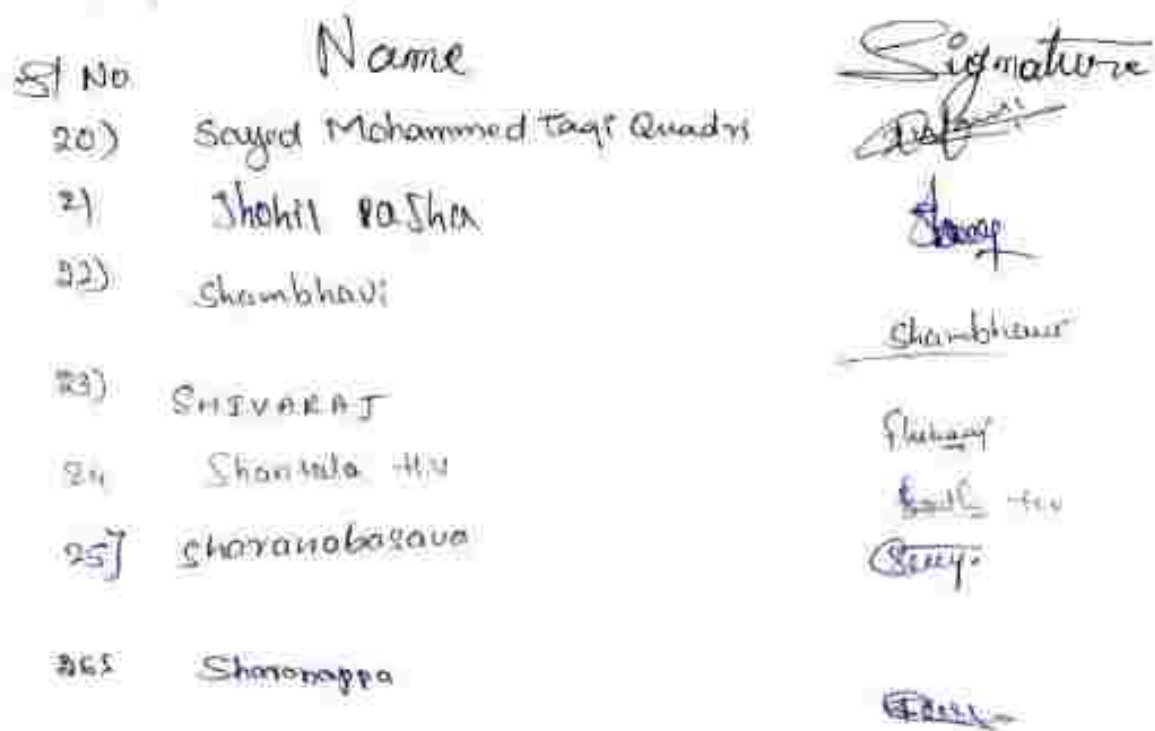 Sl No Name Signature
20) Sayed Mohammed Taqi Quadri
21 Shohil Pasha
22) Shambhavi Shambhavi
23) SHIVARAJ
24 Shantala H.V H.V
25] Sharanabasava
26] Sharanappa